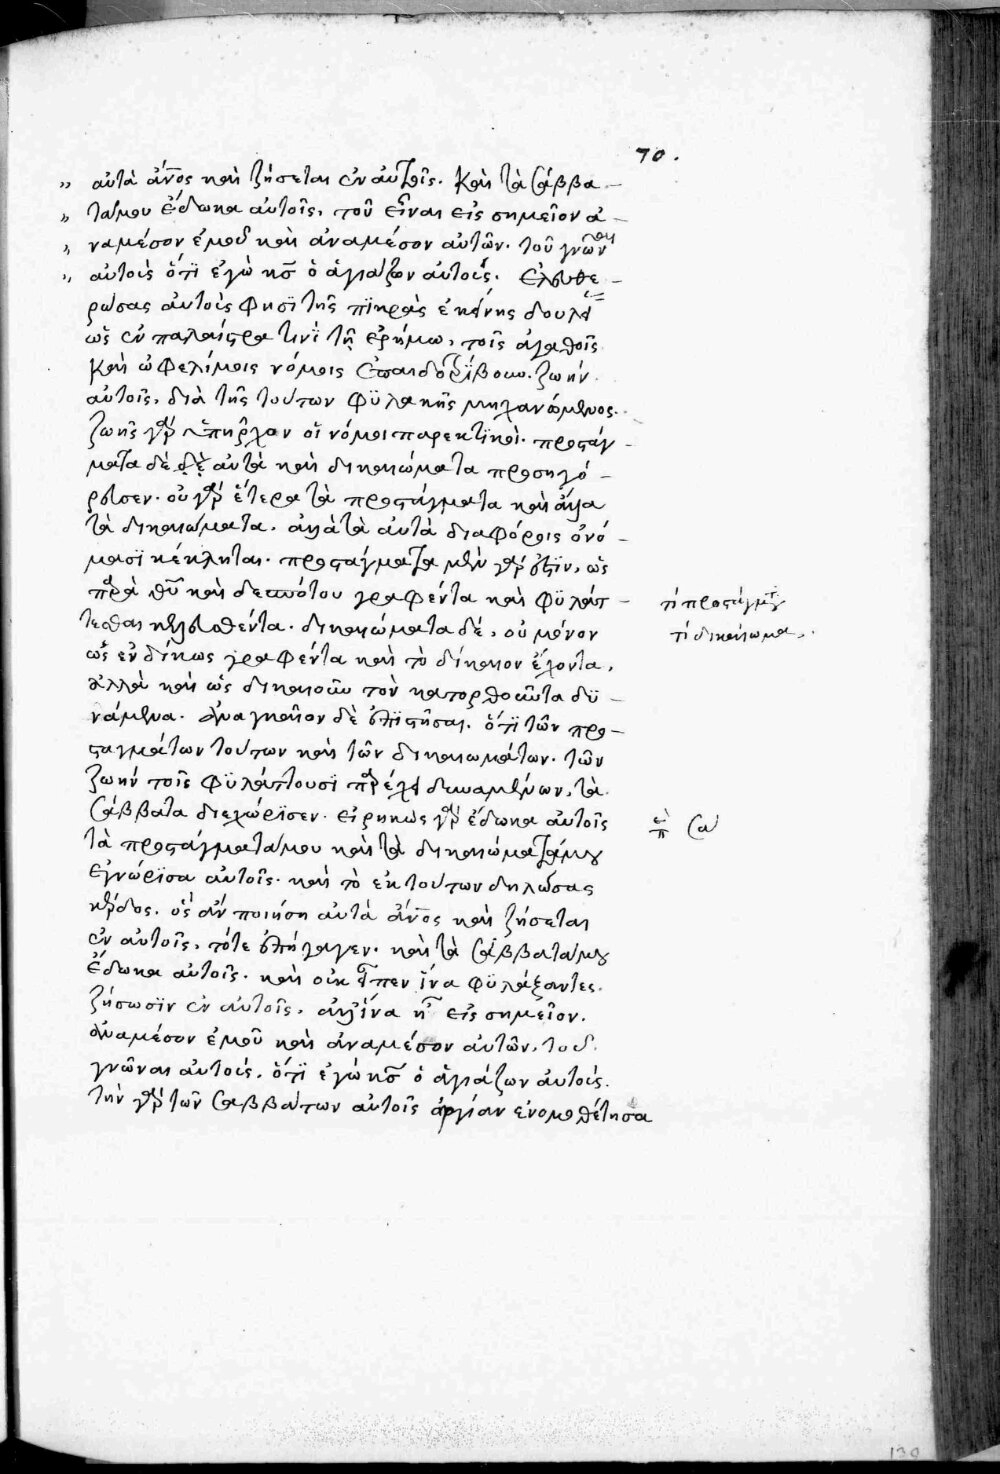 70.
„ αὐτὰ ἄνος καὶ ζήσεται ἐν αὐτοῖς. Καὶ τὰ σάββα –
„ τά μου ἔδωκα αὐτοῖς, τοῦ εἶναι εἰς σημεῖον ἀ –
„ ναμέσον ἐμοῦ καὶ ἀναμέσον αὐτῶν. τοῦ γνῶναι
„ αὐτοὺς ὅτϊ ἐγὼ κς ὁ ἁγιάζων αὐτούς. ἐλευθε –
ρώσας αὐτοὺς φησὶ τῆς πϊκρᾶς ἐκείνης δουλεί
ὡς ἐν παλαίστρα τινῒ τῇ ἐρήμω, τοῖς ἀγαθοῖς
καὶ ὠφελίμοις νόμοις ζωὴν
αὐτοῖς, διὰ τῆς τούτων φϋλακῆς μηχανώμενος.
ζωῆς γὰρ ὑπῆρχαν οἱ νόμοι παρεκτϊκοί. προστάγ –
ματα δὲ δὲ αὐτὰ καὶ δικαιώματα προσηγό –
ρευσεν. οὐ γὰρ ἕτερα τὰ προστάγματα καὶ ἄλλα
τὰ δικαιώματα. ἀλλὰ τὰ αὐτὰ διαφόροις ὀνό –
μασϊ κέκληται. προστάγματα μὲν γάρ ἐστϊν, ὡς
παρὰ θυ καὶ δεσπότου γραφέντα καὶ φϋλάτ –
τεσθαι κελευσθέντα. δικαιώματα δέ, οὐ μόνον
ὡς ἐνδίκως γραφέντα καὶ τὸ δίκαιον ἔχοντα,
ἀλλὰ καὶ ὡς δικαιοῦν τὸν κατορθοῦντα δϋ –
νάμενα. ἀναγκαῖον δὲ ἐπϊστῆσαι. ὅτϊ τῶν προ –
σταγμάτων τούτων καὶ τῶν δικαιωμάτων. τῶν
ζωὴν τοῖς φϋλάττουσϊ παρέχει δυναμένων, τὰ
σάββατα διεχώρϊσεν. εἰρηκὼς γὰρ ἔδωκα αὐτοῖς
τὰ προστάγματά μου καὶ τὰ δικαιώματά μου
ἐγνώρϊσα αὐτοῖς. καὶ τὸ ἐκ τούτων δηλώσας
κέρδος. ὃς ἂν ποιήση αὐτὰ ἄνος καὶ ζήσεται
ἐν αὐτοῖς, τότε ἐπήγαγεν. καὶ τὰ σάββατά μου
ἔδωκα αὐτοῖς. καὶ οὐκ εἶπεν ἵνα φϋλάξαντες
ζήσωσϊν ἐν αὐτοῖς. ἀλλ' ἵνα ἦ εἰς σημεῖον.
ἀναμέσον ἐμοῦ καὶ ἀναμέσον αὐτῶν. τοῦ
γνῶναι αὐτούς. ὅτϊ ἐγὼ κς ὁ ἁγιάζων αὐτούς.
τὴν γὰρ τῶν σαββάτων αὐτοῖς ἀργίαν ἐνομοθέτησα
τί προστάγμα
τί δικαίωμα.